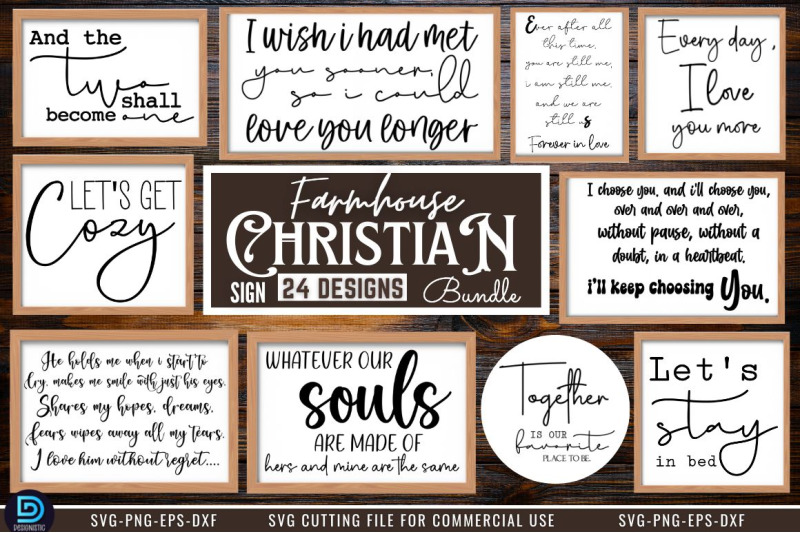 And the
two
shall
become one
I wish i had met
you sooner,
so i could
love you longer
Ever after all
this time,
you are still me,
i am still me,
and we are
still us
Forever in love
Every day,
I love
you more
LET'S GET
Cozy
Farmhouse
CHRISTIAN
SIGN 24 DESIGNS Bundle
I choose you. and i'll choose you,
over and over and over,
without pause, without a
doubt, in a heartbeat.
i'll keep choosing You.
He holds me when i start to
Cry. makes me smile with just his eyes.
Shares my hopes, dreams.
Fears wipes away all my tears.
I love him without regret....
WHATEVER OUR
souls
ARE MADE OF
hers and mine are the same
Together
IS OUR
favorite
PLACE TO BE.
Let's
stay
in bed
DESIGNISTIC
SVG-PNG-EPS-DXF
SVG CUTTING FILE FOR COMMERCIAL USE
SVG-PNG-EPS-DXF